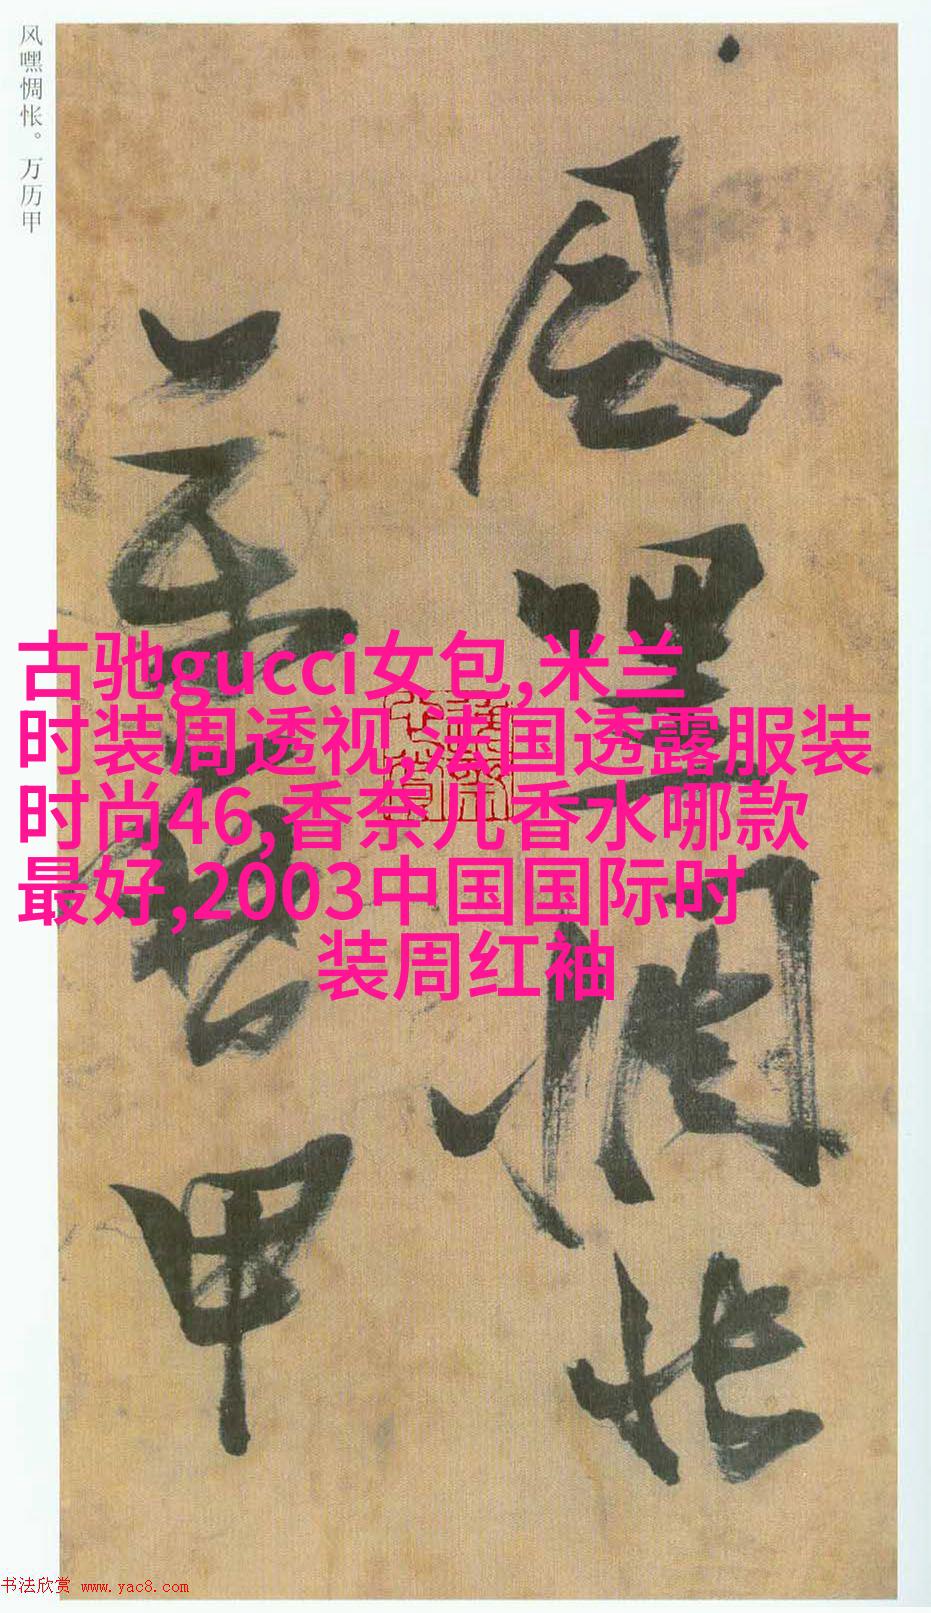 风嘿惆怅。万历甲
风嘿惆怅
万历甲
古驰gucci女包,米兰
时装周透视,法国透露服装
时尚46,香奈儿香水哪款
最好,2003中国国际时
装周红袖
书法欣赏 www.yac8.com